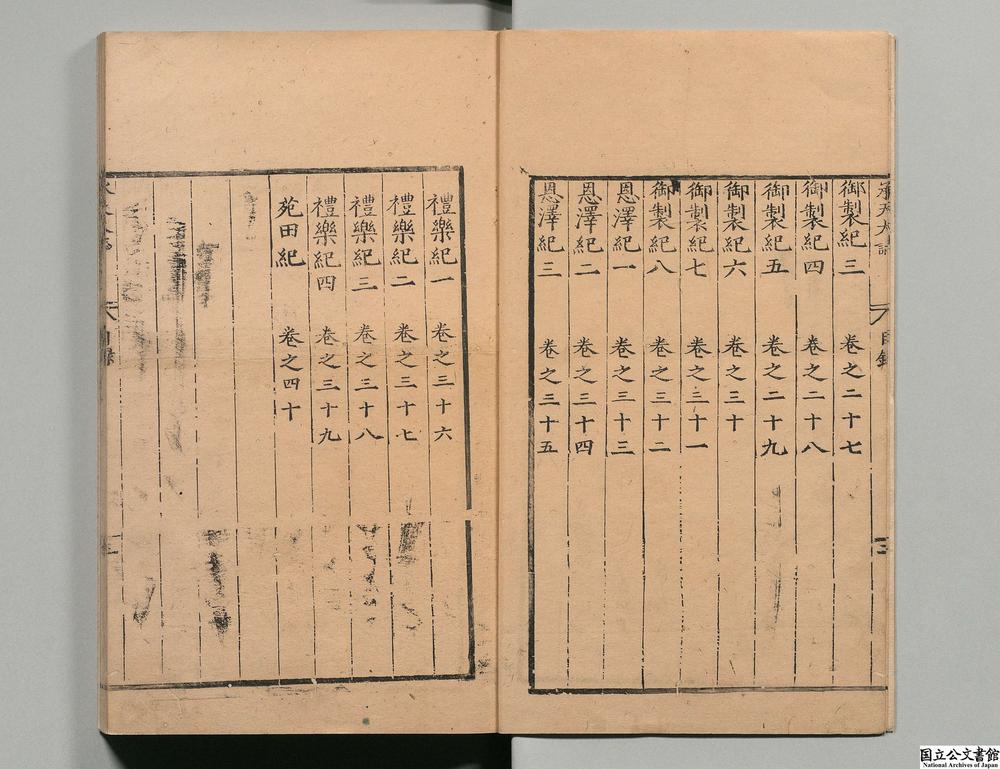 御製紀三 卷之二十七
御製紀四 卷之二十八
御製紀五 卷之二十九
御製紀六 卷之三十
御製紀七 卷之三十一
御製紀八 卷之三十二
恩澤紀一 卷之三十三
恩澤紀二 卷之三十四
恩澤紀三 卷之三十五
禮樂紀一 卷之三十六
禮樂紀二 卷之三十七
禮樂紀三 卷之三十八
禮樂紀四 卷之三十九
苑田紀 卷之四十
国立公文書館
National Archives of Japan